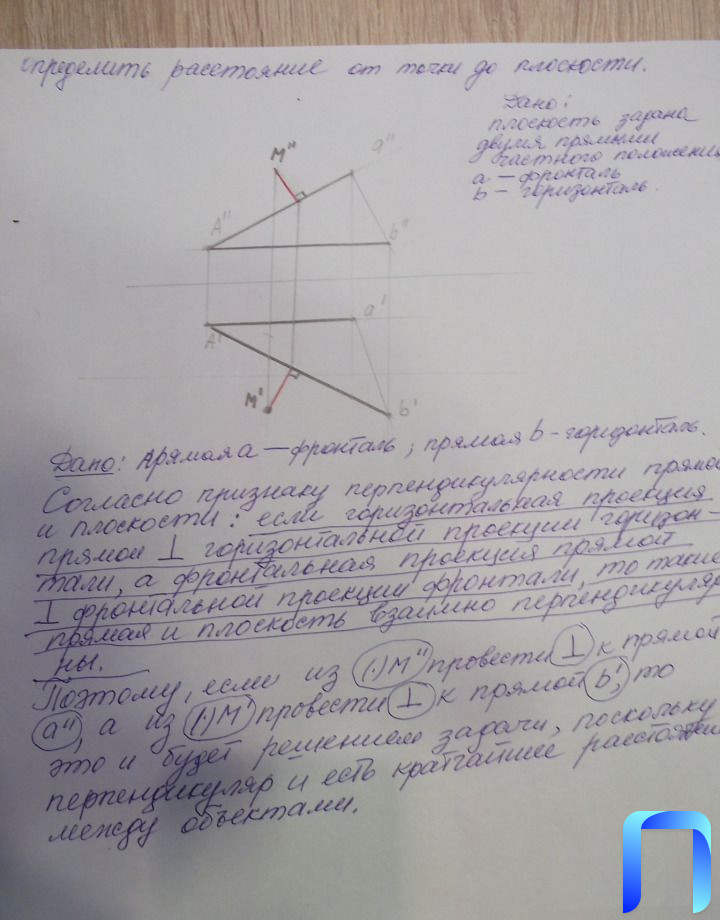 определить расстояние от точки до плоскости.
Дано:
плоскость задана
двумя прямыми
частного положения
a — фронталь
b — горизонталь.
M"
a"
A"
b"
a'
A'
M'
b'
Дано: прямая a — фронталь; прямая b - горизонталь.
Согласно признаку перпендикулярности прямой
и плоскости: если горизонтальная проекция
прямой ⊥ горизонтальной проекции горизон-
тали, а фронтальная проекция прямой
⊥ фронтальной проекции фронтали, то такие
прямая и плоскость взаимно перпендикуляр
ны.
Поэтому, если из (·)M" провести ⊥ к прямой
a", а из (·)M' провести ⊥ к прямой b', то
это и будет решением задачи, поскольку
перпендикуляр и есть кратчайшее расстояние
между объектами.